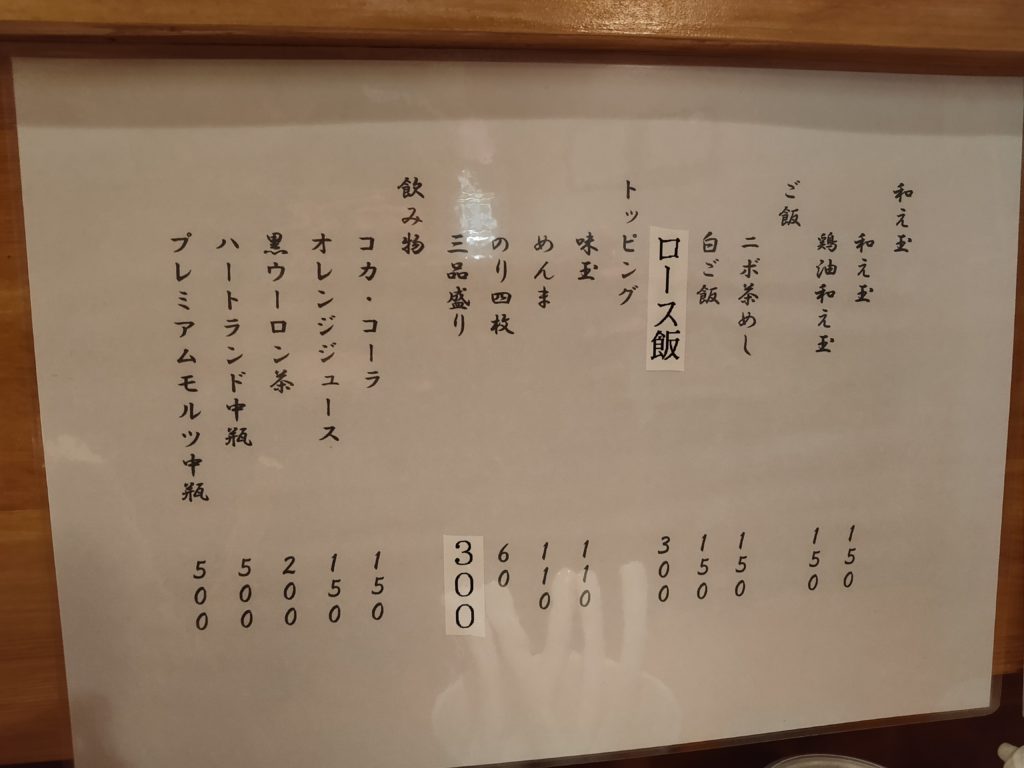 和え玉
和え玉 150
鶏油和え玉 150
ご飯
ニボ茶めし 150
白ご飯 150
ロース飯 300
トッピング
味玉 110
めんま 110
のり四枚 60
三品盛り 300
飲み物
コカ・コーラ 150
オレンジジュース 150
黒ウーロン茶 200
ハートランド中瓶 500
プレミアムモルツ中瓶 500